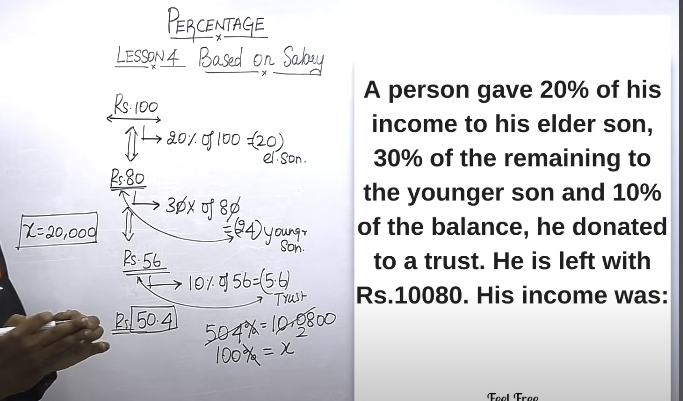 PERCENTAGE
LESSON 4 Based on Salary
Rs.100
20% of 100 = (20)
el.son.
Rs.80
30% of 80
= (24) youngr
son.
x=20,000
Rs.56
10% of 56=(5.6)
Trust
Rs. 50.4
50.4% = 10,0800
2
100% = x
A person gave 20% of his
income to his elder son,
30% of the remaining to
the younger son and 10%
of the balance, he donated
to a trust. He is left with
Rs.10080. His income was:
Feel Free